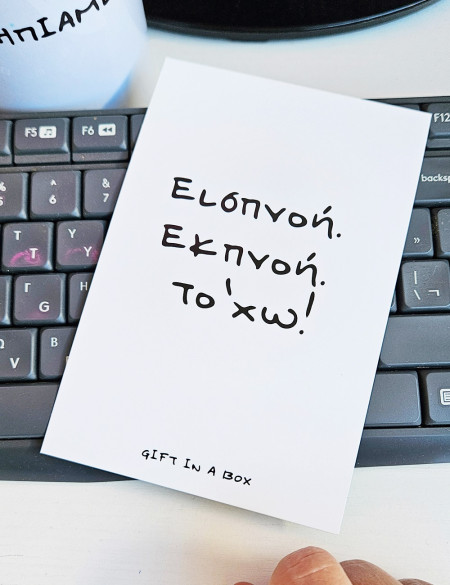 ΗΠΙΑΜ
F5
F6
F12
backsp
%
5
^
6
&
7
T
Τ
Y
Υ
G
Γ
H
V
B
»
|
\ ¬
Εισπνοή.
Εκπνοή.
Το 'χω!
GIFT IN A BOX